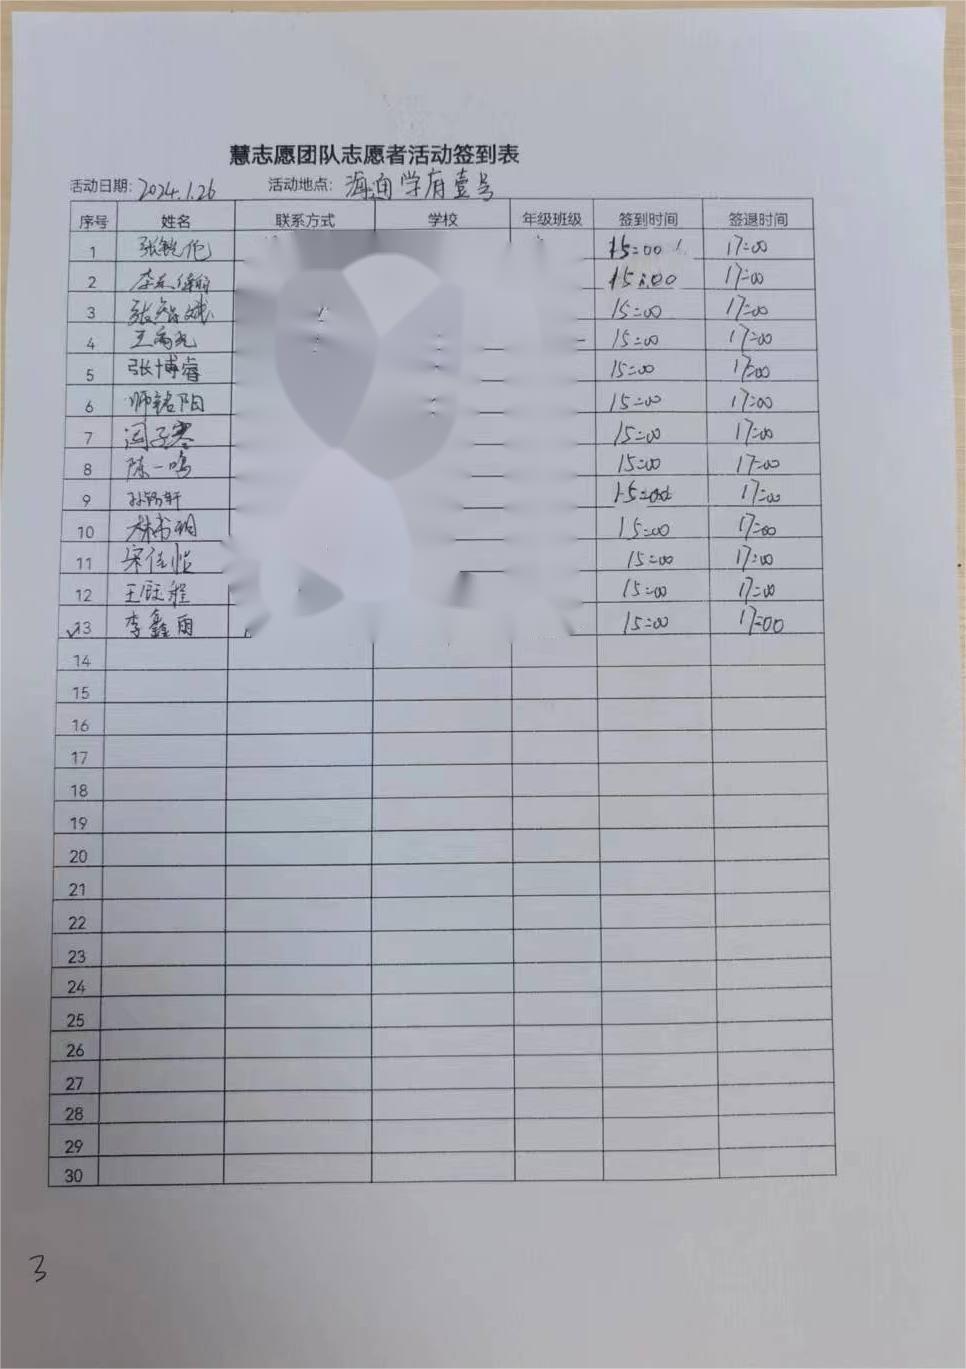 慧志愿团队志愿者活动签到表
活动日期: 2024.1.26 活动地点: 海通学府壹号
序号 姓名 联系方式 学校 年级班级 签到时间 签退时间
1 张锐伦 15:00 17:00
2 15:00 17:00
3 张 斌 15:00 17:00
4 王 15:00 17:00
5 张博睿 15:00 17:00
6 师铭阳 15:00 17:00
7 闫子骞 15:00 17:00
8 陈一鸣 15:00 17:00
9 孙 轩 15:00 17:00
10 林书玥 15:00 17:00
11 宋佳怡 15:00 17:00
12 王钰程 15:00 17:00
13 李鑫雨 15:00 17:00
14
15
16
17
18
19
20
21
22
23
24
25
26
27
28
29
30
3